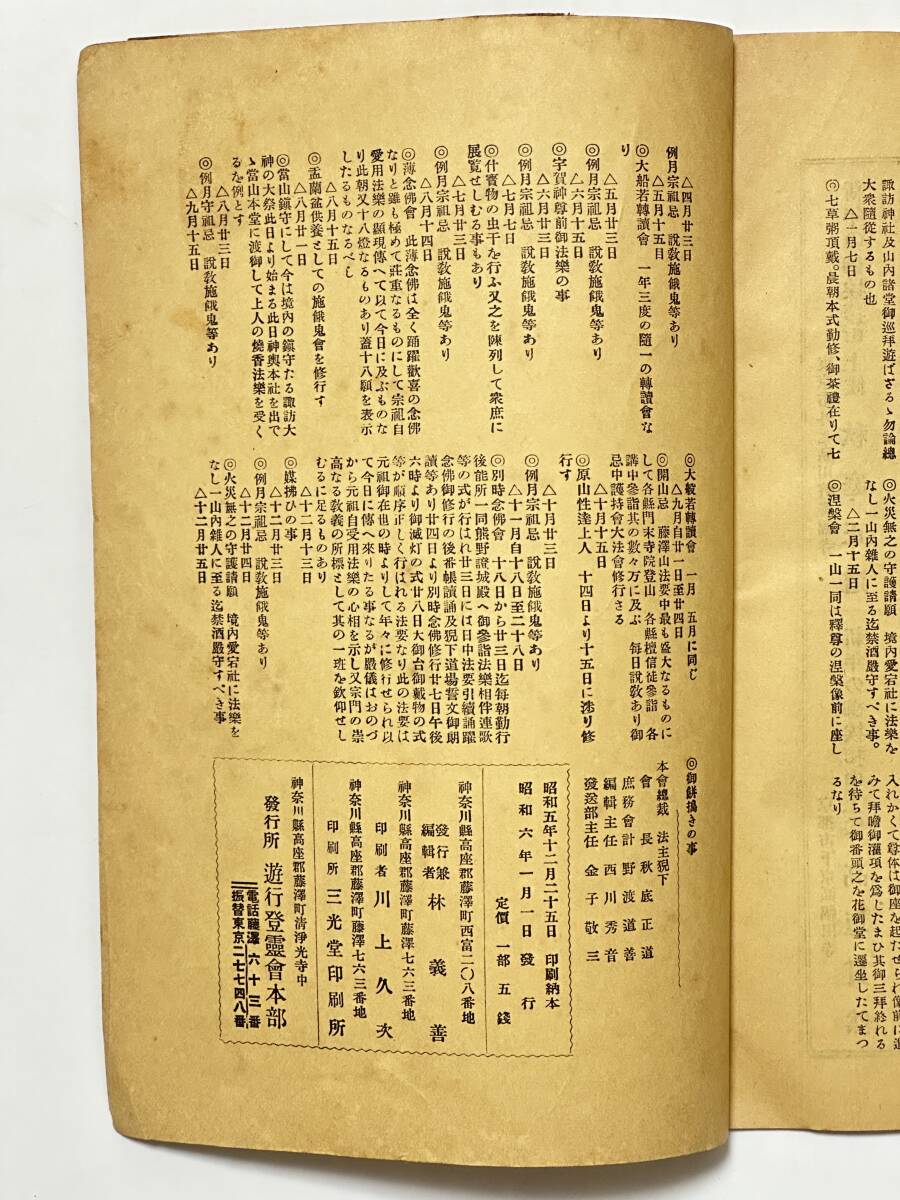 諏訪神社及山内諸堂御巡拜遊ばさるゝ勿論總
大衆隨從するもの也
△一月七日
◎七草粥頂戴。晨朝本式勤修、御茶禮在りて七
◎火災無之の守護請願 境内愛宕社に法樂を
なし一山内雜人に至る迄禁酒嚴守すべき事。
△二月十五日
◎涅槃會 一山一同は釋尊の涅槃像前に座し
入れかくて尊体は御座を起たせられ像前に進
みて拜瞻御灌項を爲したまひ其御三拜終れる
を待ちて御番頭之を花御堂に遷坐したてまつ
るなり
△四月廿三日
例月宗祖忌 說敎施餓鬼等あり
△五月十五日
◎大般若轉讀會 一年三度の隨一の轉讀會な
り
△五月廿三日
◎例月宗祖忌 說敎施餓鬼等あり
△六月十五日
◎宇賀神尊前御法樂の事
△六月廿三日
◎例月宗祖忌 說敎施餓鬼等あり
△七月七日
◎什寶物の虫干を行ふ又之を陳列して衆庶に
展覧せしむる事もあり
△七月廿三日
◎例月宗祖忌 說敎施餓鬼等あり
△八月十四日
◎薄念佛會 此薄念佛は全く踊躍歡喜の念佛
なりと雖も極めて莊重なるものにして宗祖自
愛用法樂の顯現傳へて以て今日に及ぶものな
り此朝又十八燈なるものあり蓋十八願を表示
したるものなるべし
△八月十五日
◎盂蘭盆供養としての施餓鬼會を修行す
△八月廿一日
◎當山鎭守にして今は境内の鎭守たる諏訪大
神の大祭此日より始まる此日神輿本社を出で
ゝ當山本堂に渡御して上人の燒香法樂を受く
るを例とす
△八月廿三日
◎例月守祖忌 說敎施餓鬼等あり
△九月十五日
◎大般若轉讀會 一月 五月に同じ
△九月自廿一日至廿四日
◎開山忌 藤澤山法要中最も盛大なるものに
して各縣門末寺院登山 各縣檀信徒參詣 各
講中參詣其の數々万に及ぶ 毎日說敎あり御
忌中護持會大法會修行さる
△十月十五日
◎原山性達上人 十四日より十五日に渉り修
行す
△十月廿三日
◎例月宗祖忌 說敎施餓鬼等あり
△十一月自十八日至二十八日
◎別時念佛會 十八日から廿三日迄毎朝勤行
後能所一同熊野證城殿へ御參詣法樂相伴連歌
等の式が行はれ廿三日には日中法要引續踊躍
念佛御修行の後番帳讀誦及猊下道場誓文御朗
讀等あり廿四日より別時念佛修行廿七日午後
六時より御滅灯の式廿八日大御台御戴物の式
等が順序正しく行はれる法要なり此の法要は
元祖御在世の時よりして年々に修行せられ以
て今日に傳へ來りたる事なるが嚴儀はおのづ
から元祖自受用法樂の心相を示し又宗門の崇
高なる敎義の所標として其の一班を欽仰せし
むるに足るものあり
△十二月十三日
◎媒拂ひの事
△十二月廿三日
◎例月宗祖忌 說敎施餓鬼等あり
△十二月廿四日
◎火災無之の守護請願 境内愛宕社に法樂を
なし一山内雜人に至る迄禁酒嚴守すべき事
△十二月廿五日
◎御餅搗きの事
本會總裁 法主猊下
會長 秋底正道
庶務會計 野渡道善
編輯主任 西川秀音
發送部主任 金子敬三
昭和五年十二月二十五日 印刷納本
昭和六年一月一日發行
定價 一部五錢
神奈川縣高座郡藤澤町西富二〇八番地
發行兼編輯者 林義善
神奈川縣高座郡藤澤町藤澤七六三番地
印刷者 川上久次
神奈川縣高座郡藤澤町藤澤七六三番地
印刷所 三光堂印刷所
神奈川縣高座郡藤澤町淸淨光寺中
發行所 遊行登靈會本部
電話藤澤六十三番
振替東京二七七四八番